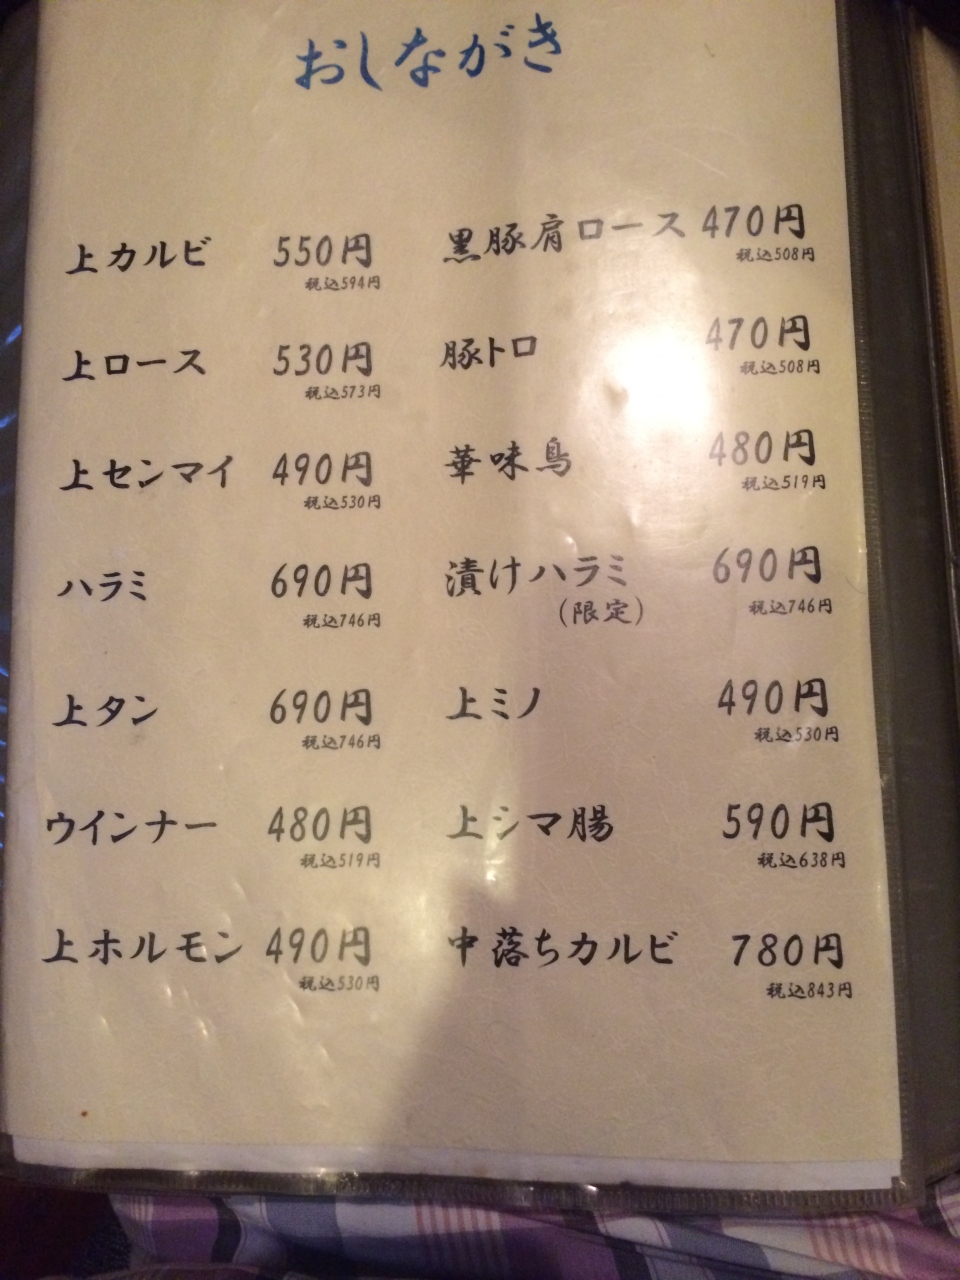 おしながき
上カルビ 550円
税込594円
上ロース 530円
税込573円
上センマイ 490円
税込530円
ハラミ 690円
税込746円
上タン 690円
税込746円
ウインナー 480円
税込519円
上ホルモン 490円
税込530円
黒豚肩ロース 470円
税込508円
豚トロ 470円
税込508円
華味鳥 480円
税込519円
漬けハラミ 690円
(限定) 税込746円
上ミノ 490円
税込530円
上シマ腸 590円
税込638円
中落ちカルビ 780円
税込843円